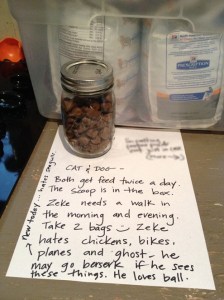 CAT & DOG - -
Both get feed twice a day.
The scoop is in the box.
Zeke needs a walk in
the morning and evening.
Take 2 bags Zeke
hates chickens, bikes,
planes and ghost - he
may go beserk if he sees
these things. He loves ball.
New today... hates